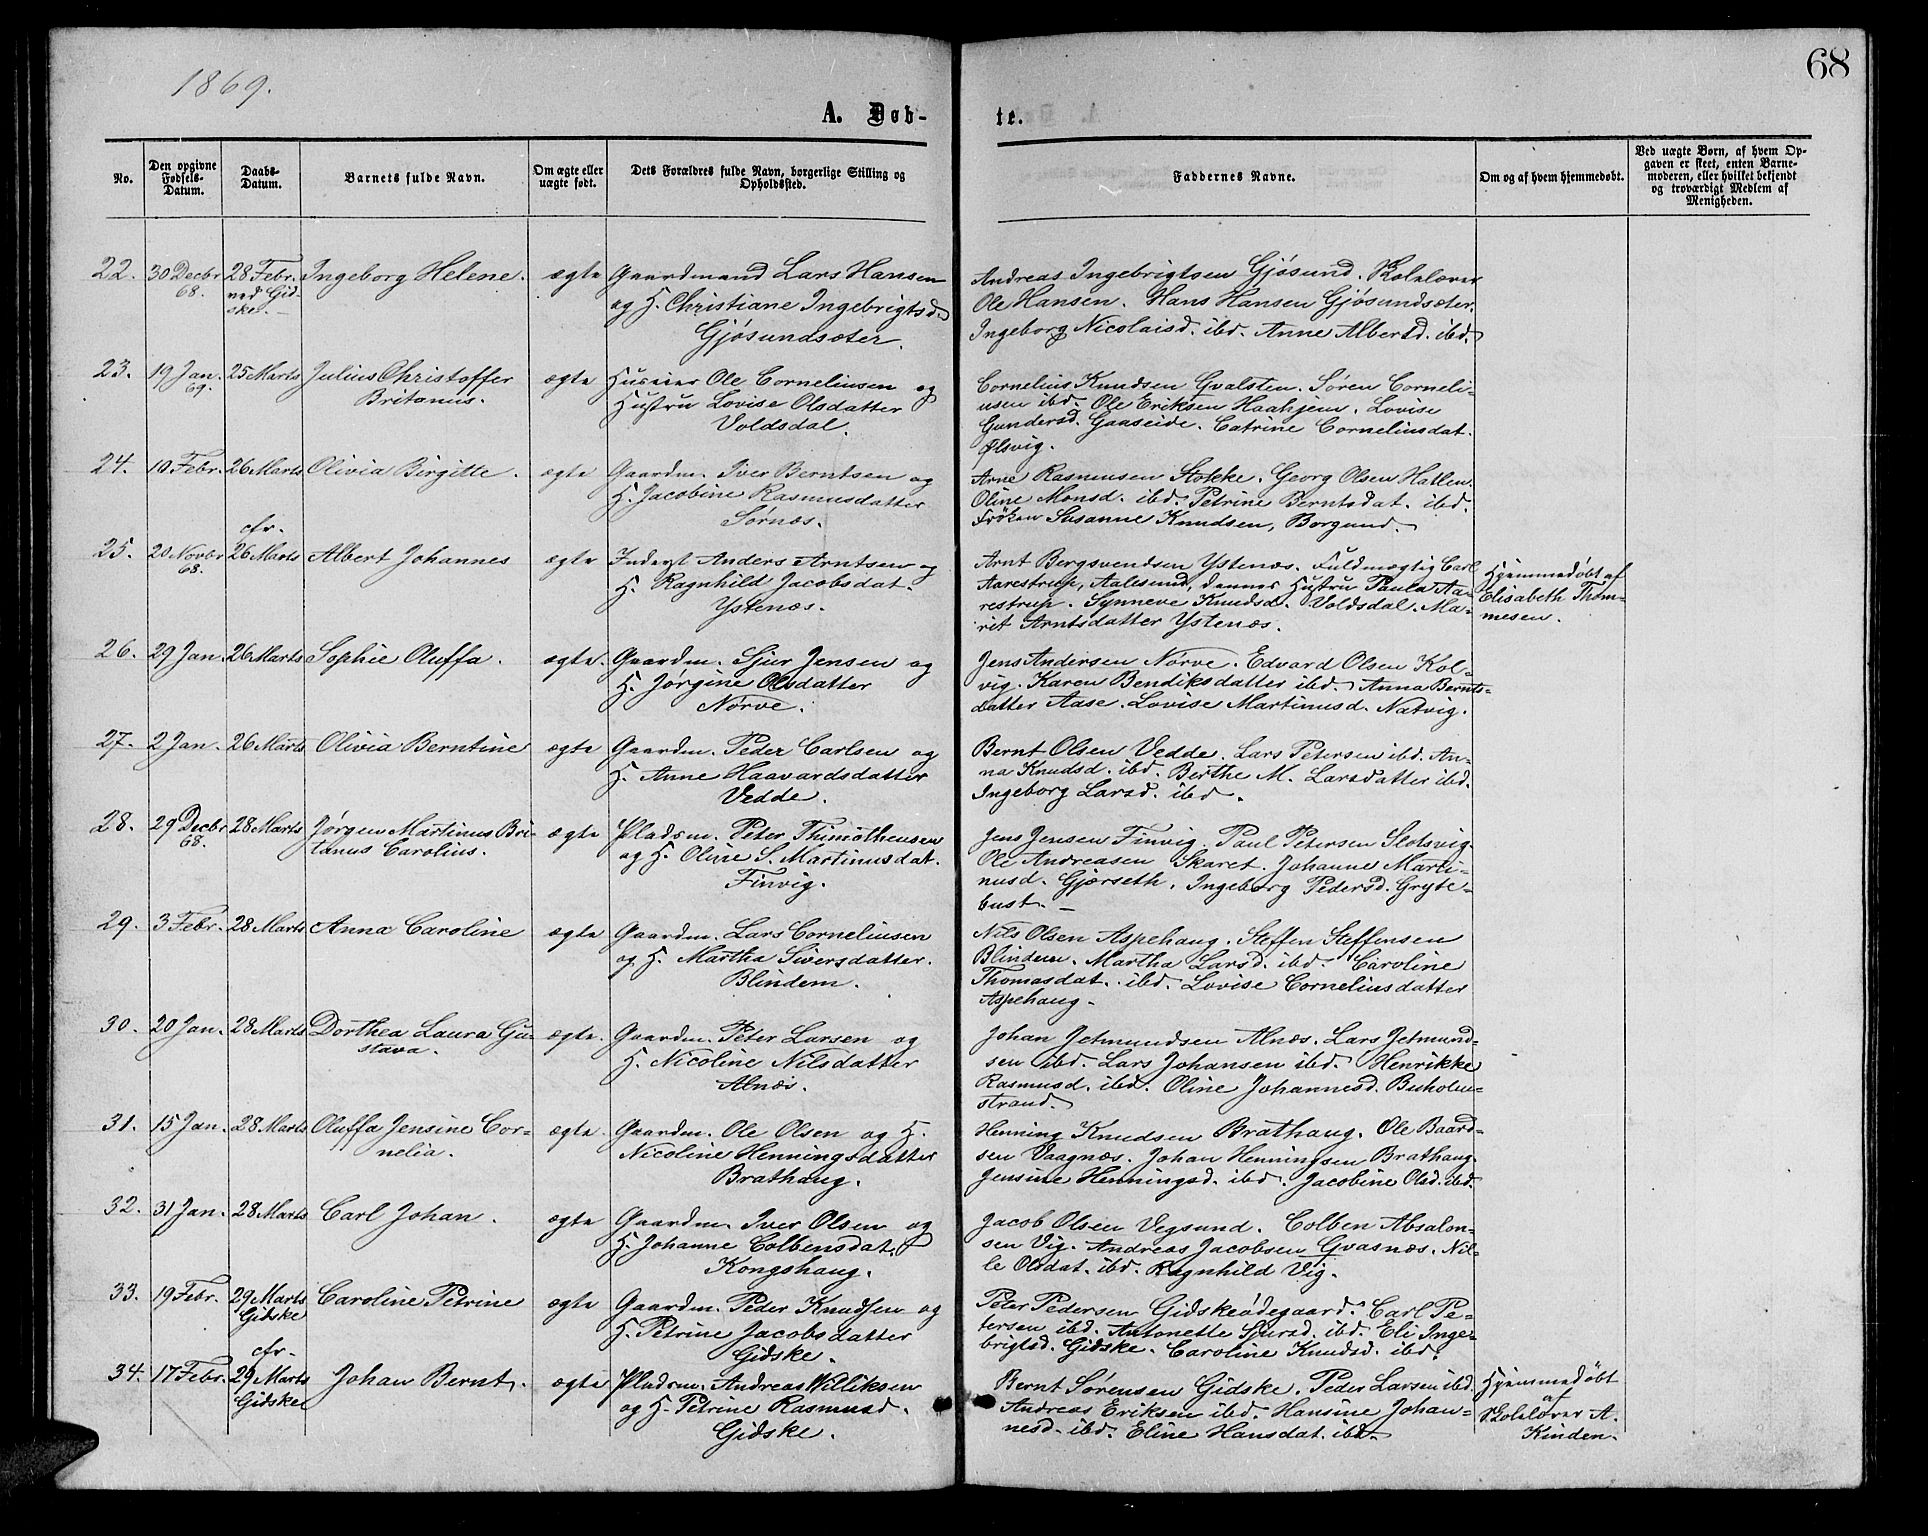 1869.
68
A. Døb-
te.
No.
Den opgivne
Fødsels-
Datum.
Daabs-
Datum.
Barnets fulde Navn.
Om ægte eller
uægte født.
Dets Forældres fulde Navn, borgerlige Stilling og
Opholdssted.
Faddernes Navne.
Om og af hvem hjemmedøbt.
Ved uægte Børn, af hvem Op-
gaven er skeet, enten Barne-
moderen, eller hvilket bekjendt
og troværdigt Medlem af
Menigheden.
22.
30 Decbr
68.
28 Febr.
ved Gid-
ske. -
Ingeborg Helene.
ægte
Gaardmand Lars Hansen
og H. Christiane Ingebrigtsd.
Gjøsundsæter.
Andreas Ingebrigtsen Gjøsund. Skolelærer
Ole Hansen. Hans Hansen Gjøsundsæter.
Ingeborg Nicolaisd. ibd. Anne Albertsd. ibd.
23.
19 Jan.
69.
25 Marts
Julius Christoffer
Britanus.
ægte
Huseier Ole Corneliusen og
Hustru Lovise Olsdatter
Voldsdal.
Cornelius Knudsen Gvalsten. Søren Corneli-
usen ibd. Ole Eriksen Haahjem. Lovise
Gundersd. Gaaseide. Catrine Corneliusdat.
Ølsvig.
24.
10 Febr.
26 Marts
Olivia Birgitte.
ægte
Gaardm. Iver Berntsen og
H. Jacobine Rasmusdatter
Sørnæs.
Arne Rasmussen Stokke. Georg Olsen Hatlen.
Oline Monsd. ibd. Petrine Berntsdat. ibd.
Frøken Susanne Knudsen, Borgund.
25.
20 Novbr
68.
cfr.
26 Marts
Albert Johannes
ægte
Inderst Anders Arntsen og
H. Ragnhild Jacobsdat.
Ystenæs.
Arnt Bergsvendsen Ystenæs. Fuldmægtig Carl
Aarestrup, Aalesund, dennes Hustru Paula Aa-
restrup. Synneve Knudsd. Voldsdal. Ma-
rit Arntsdatter Ystenæs.
Hjemmedøbt af
Elisabeth Thom-
mesen.
26.
29 Jan.
26 Marts
Sophie Oluffa.
ægte.
Gaardm. Sjur Jensen og
H. Jørgine Olsdatter
Nørve.
Jens Andersen Nørve. Edvard Olsen Kol-
vig. Karen Bendiksdatter ibd. Anna Bernts-
datter Aase. Lovise Martinusd. Natvig.
27.
2 Jan.
26 Marts
Olivia Berntine
ægte
Gaardm. Peder Carlsen og
H. Anne Haavardsdatter
Vedde.
Bernt Olsen Vedde. Lars Petersen ibd. An-
na Knudsd. ibd. Berthe M. Larsdatter ibd.
Ingeborg Larsd. ibd.
28.
29 Decbr
68.
28 Marts
Jørgen Martinus Bri-
tanus Carolius.
ægte
Pladsm. Peter Thimotheusen
og H. Oline S. Martinusdat.
Finvig.
Jens Jensen Finvig. Paul Petersen Slotsvig.
Ole Andreasen Skaret. Johanne Marti-
nusd. Gjærseth. Ingeborg Pedersd. Gryte-
bust. -
29.
3 Febr.
28 Marts
Anna Caroline
ægte
Gaardm. Lars Corneliusen
og H. Martha Siversdatter.
Blindem.
Nils Olsen Aspehaug. Steffen Steffensen
Blindem. Martha Larsd. ibd. Caroline
Thomasdat. ibd. Lovise Corneliusdatter
Aspehaug.
30.
20 Jan.
28 Marts
Dorthea Laura Gu-
stava.
ægte.
Gaardm. Peter Larsen og
H. Nicoline Nilsdatter
Alnæs.
Johan Jetmundsen Alnæs. Lars Jetmund-
sen ibd. Lars Johansen ibd. Henrikke
Rasmusd. ibd. Oline Johannesd. Buholm-
strand.
31.
15 Jan.
28 Marts
Oluffa Jensine Cor-
nelia.
ægte.
Gaardm. Ole Olsen og H.
Nicoline Henningsdatter
Brathaug.
Henning Knudsen Brathaug. Ole Baard-
sen Vaagnæs. Johan Henningsen Brathaug.
Jensine Henningsd. ibd. Jacobine Olsd. ibd.
32.
31 Jan.
28 Marts
Carl Johan.
ægte
Gaardm. Iver Olsen og
H. Johanne Colbensdat.
Kongshaug.
Jacob Olsen Vegsund. Colben Absalon-
sen Vig. Andreas Jacobsen Gvasnæs. Nil-
le Olsdat. ibd. Ragnhild Vig.
33.
19 Febr.
29 Marts
Gidske
Caroline Petrine
ægte
Gaardm. Peder Knudsen og
H. Petrine Jacobsdatter
Gidske.
Peter Pedersen Gidskeødegaard. Carl Pe-
tersen ibd. Antonette Sjursd. ibd. Eli Inge-
brigtsd. Gidske. Caroline Knudsd. ibd.
34.
17 Febr.
cfr.
29 Marts
Gidske
Johan Bernt.
ægte
Pladsm. Andreas Williksen
og H. Petrine Rasmusd.
Gidske.
Bernt Sørensen Gidske. Peder Larsen ibd.
Andreas Eriksen ibd. Hansine Johan-
nesd. ibd. Eline Hansdat. ibd.
Hjemmedøbt
af
Skolelærer A.
Kinden.